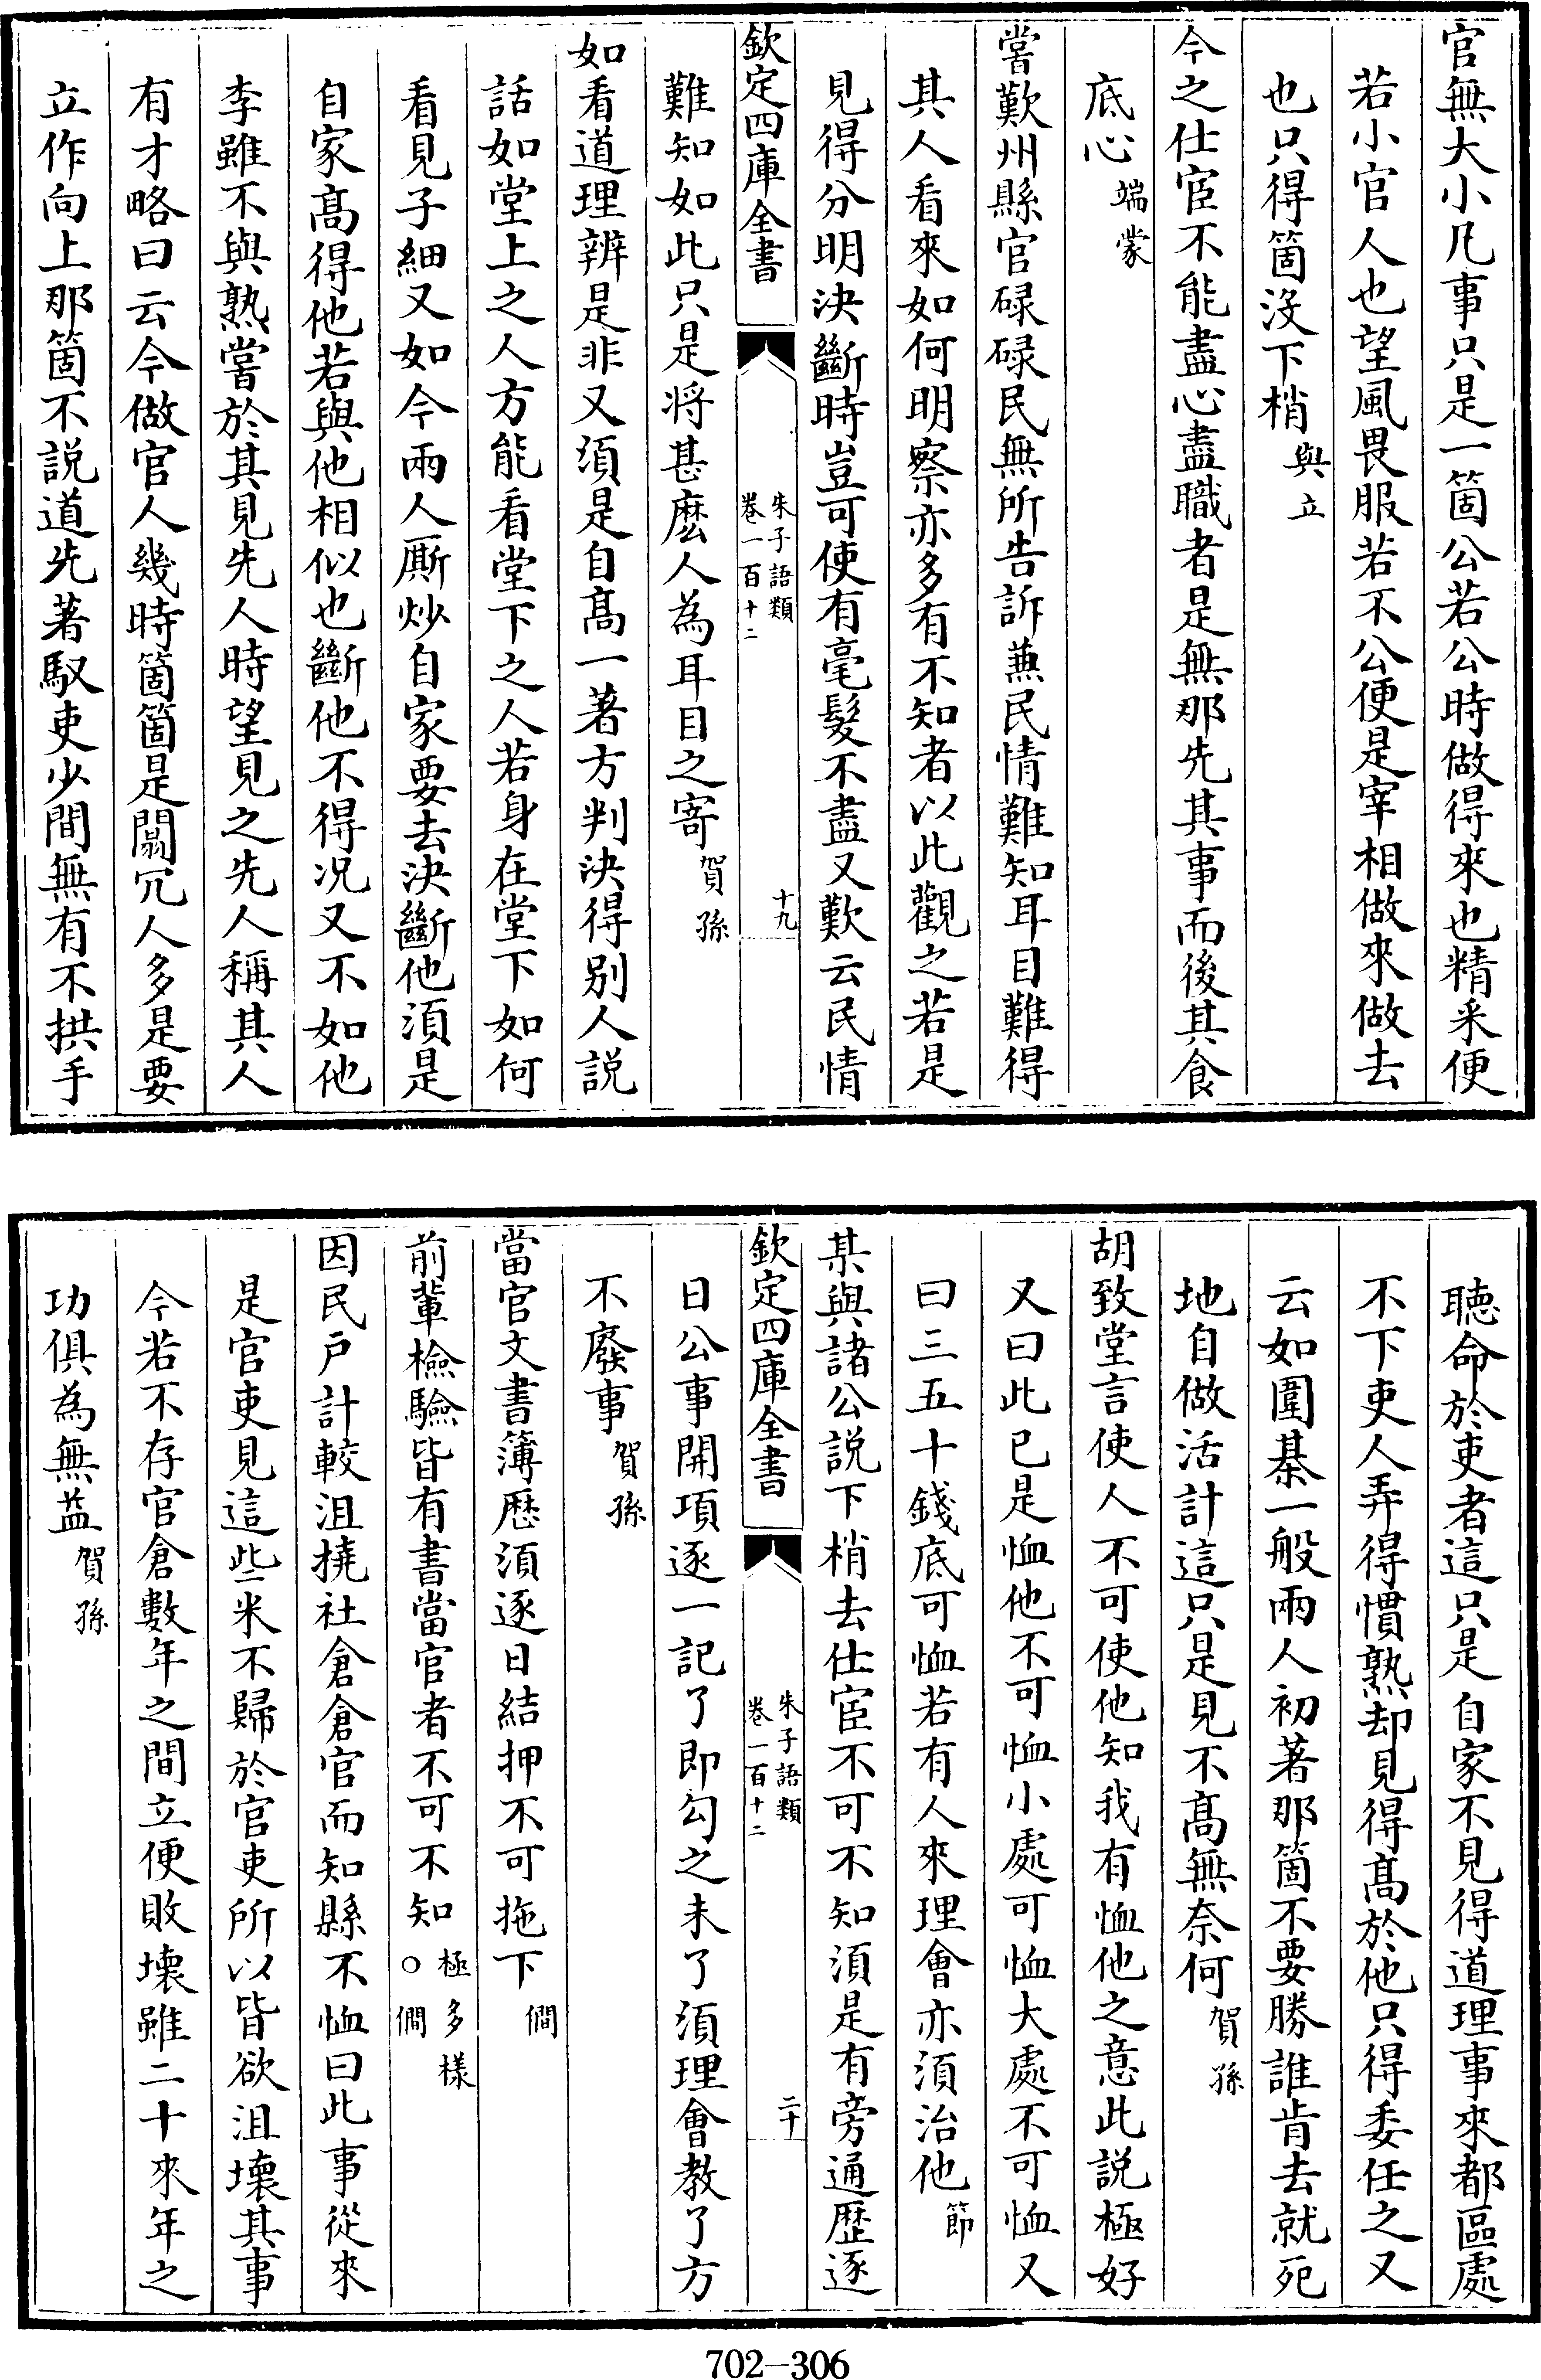 官無大小凡事只是一箇公若公時做得來也精采便
若小官人也望風畏服若不公便是宰相做來做去
也只得箇沒下梢與立
今之仕宦不能盡心盡職者是無那先其事而後其食
底心端蒙
嘗歎州縣官碌碌民無所告訴兼民情難知耳目難得
其人看來如何明察亦多有不知者以此觀之若是
見得分明決斷時豈可使有毫髮不盡又歎云民情
欽定四庫全書
朱子語類
卷一百十二
十九
難知如此只是將甚麽人為耳目之寄賀孫
如看道理辨是非又須是自高一著方判決得别人説
話如堂上之人方能看堂下之人若身在堂下如何
看見子細又如今兩人厮炒自家要去決斷他須是
自家高得他若與他相似也斷他不得况又不如他
李雖不與熟嘗於其見先人時望見之先人稱其人
有才略曰云今做官人幾時箇箇是闒冗人多是要
立作向上那箇不説道先著馭吏少間無有不拱手
聽命於吏者這只是自家不見得道理事來都區處
不下吏人弄得慣熟却見得高於他只得委任之又
云如圍碁一般兩人初著那箇不要勝誰肯去就死
地自做活計這只是見不高無奈何賀孫
胡致堂言使人不可使他知我有恤他之意此説極好
又曰此已是恤他不可恤小處可恤大處不可恤又
曰三五十錢底可恤若有人來理會亦須治他節
某與諸公説下梢去仕宦不可不知須是有旁通歷逐
欽定四庫全書
朱子語類
卷一百十二
二十
日公事開項逐一記了即勾之未了須理會教了方
不廢事賀孫
當官文書簿歷須逐日結押不可拖下僩
前輩檢驗皆有書當官者不可不知極多樣○僩
因民户計較沮撓社倉倉官而知縣不恤曰此事從來
是官吏見這些米不歸於官吏所以皆欲沮壞其事
今若不存官倉數年之間立便敗壞雖二十來年之
功俱為無益賀孫
702-306